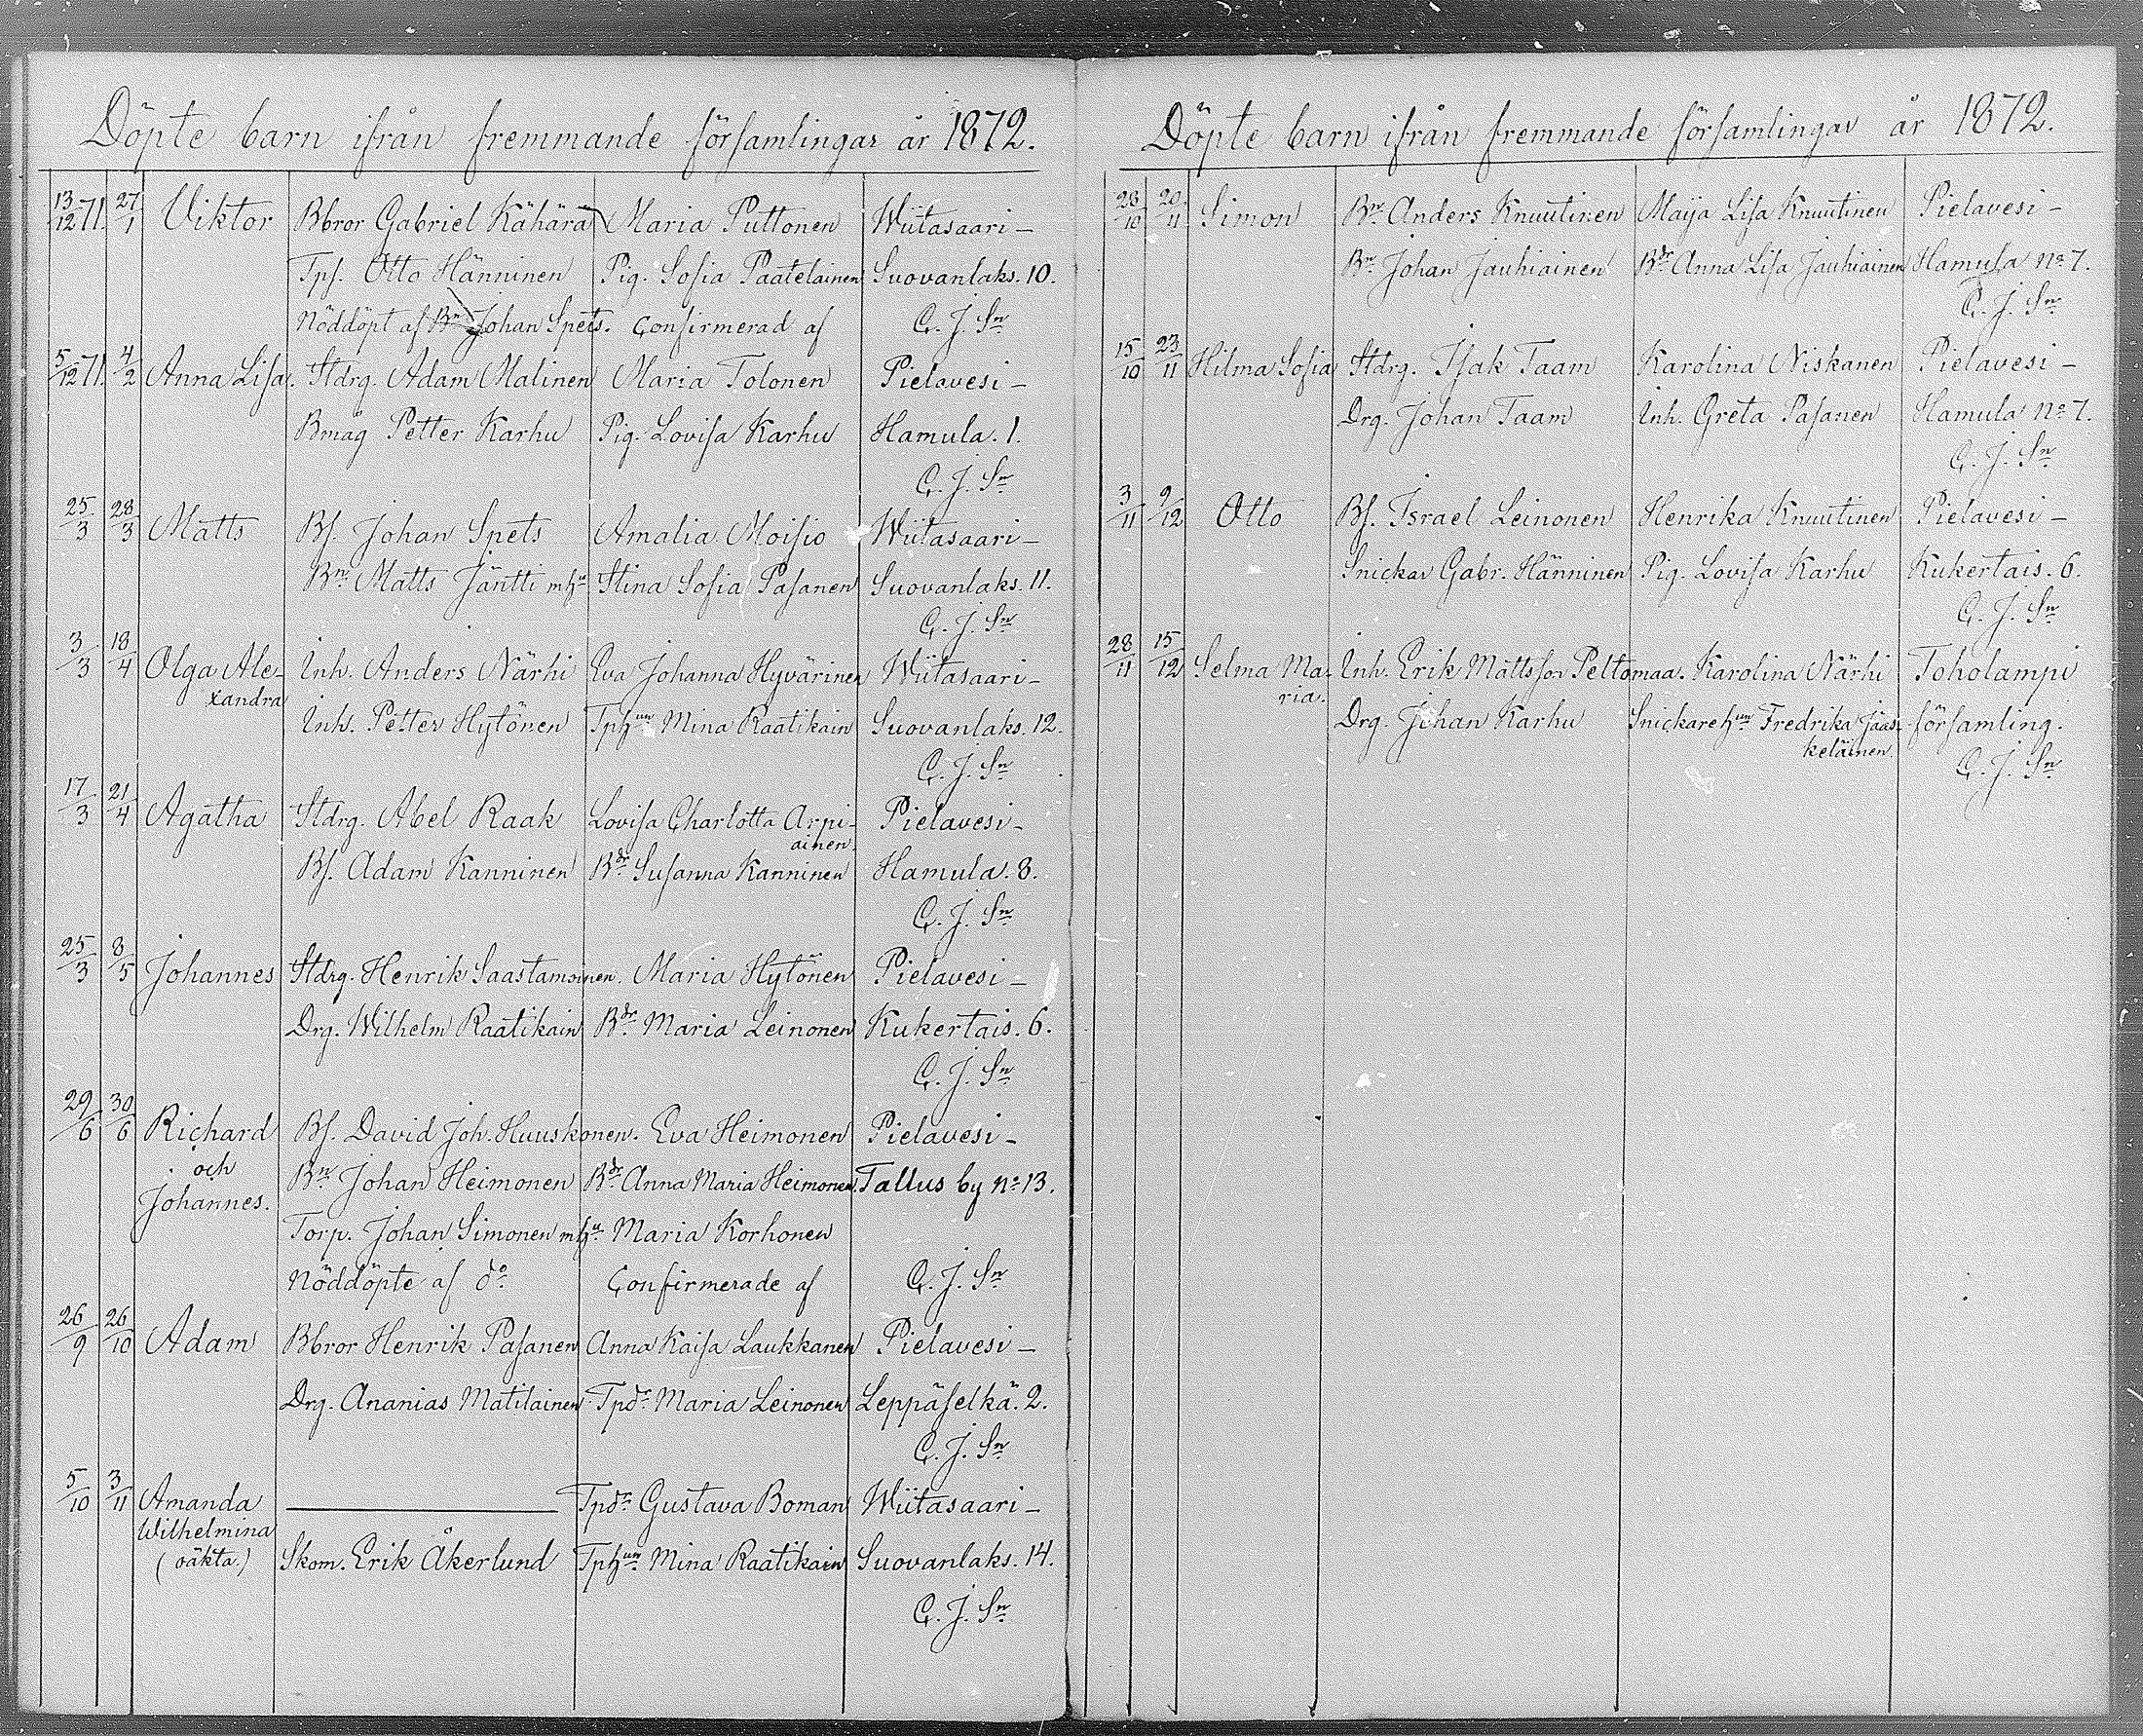 Döpte barn ifrån fremmande församlingar år 1872.
13/12 71. 27/1 Viktor Bbror Gabriel Kähärä Maria Puttonen Wiitasaari –
Tps. Otto Hänninen Pig. Sofia Paatelainen Suovanlaks. 10.
Nöddöpt af Bn Johan Spets. Confirmerad af C. J. Sn
5/12 71. 4/2 Anna Lisa. Stdrg. Adam Malinen Maria Tolonen Pielavesi –
Bmåg Petter Karhu Pig. Lovisa Karhu Hamula. 1.
C. J. Sn
25/3 28/3 Matts Bs. Johan Spets Amalia Moisio Wiitasaari –
Bn Matts Jäntti mhu Stina Sofia Pasanen Suovanlaks. 11.
C. J. Sn
3/3 18/4 Olga Ale- Inh. Anders Närhi Eva Johanna Hyvärinen Wiitasaari –
xandra
Inh. Petter Hytönen Tphun Mina Raatikain Suovanlaks. 12.
C. J. Sn
17/3 21/4 Agatha Stdrg. Abel Raak Lovisa Charlotta Arpi- Pielavesi –
ainen.
Bs. Adam Kanninen Bdr Susanna Kanninen Hamula. 8.
C. J. Sn
25/3 8/5 Johannes Stdrg. Henrik Saastamoinen. Maria Hytönen Pielavesi –
Drg. Wilhelm Raatikain Bdr Maria Leinonen Kukertais. 6.
C. J. Sn
29/6 30/6 Richard Bs. David Joh. Huuskonen. Eva Heimonen Pielavesi –
och Bn Johan Heimonen Bdr Anna Maria Heimonen. Tallus by No 13.
Johannes.
Torp. Johan Simonen mhu Maria Korhonen
Nöddöpte af do Confirmerade af C. J. Sn
26/9 26/10 Adam Bbror Henrik Pasanen Anna Kaisa Laukkanen Pielavesi –
Drg. Ananias Matilainen Tpdr Maria Leinonen Leppäselkä. 2.
C. J. Sn
5/10 3/11 Amanda Tpdr Gustava Boman Wiitasaari –
Wilhelmina
(oäkta.) Skom. Erik Åkerlund Tphun Mina Raatikain Suovanlaks. 14.
C. J. Sn
Döpte barn ifrån fremmande församlingar år 1872.
28/10 20/11 Simon Bn Anders Knuutinen Maija Lisa Knuutinen Pielavesi –
Bn Johan Jauhiainen Bdr Anna Lisa Jauhiainen Hamula No 7.
C. J. Sn
15/10 23/11 Hilma Sofia Stdrg. Isak Taam Karolina Niskanen Pielavesi –
Drg. Johan Taam Inh. Greta Pasanen Hamula No 7.
C. J. Sn
3/11 9/12 Otto Bs. Israel Leinonen Henrika Knuutinen Pielavesi –
Snickar Gabr. Hänninen Pig. Lovisa Karhu Kukertais. 6.
C. J. Sn
28/11 15/12 Selma Ma- Inh. Erik Mattsson Peltomaa. Karolina Närhi Toholampi
ria.
Drg. Johan Karhu Snickarehun Fredrika Jääs- församling.
keläinen.
C. J. Sn